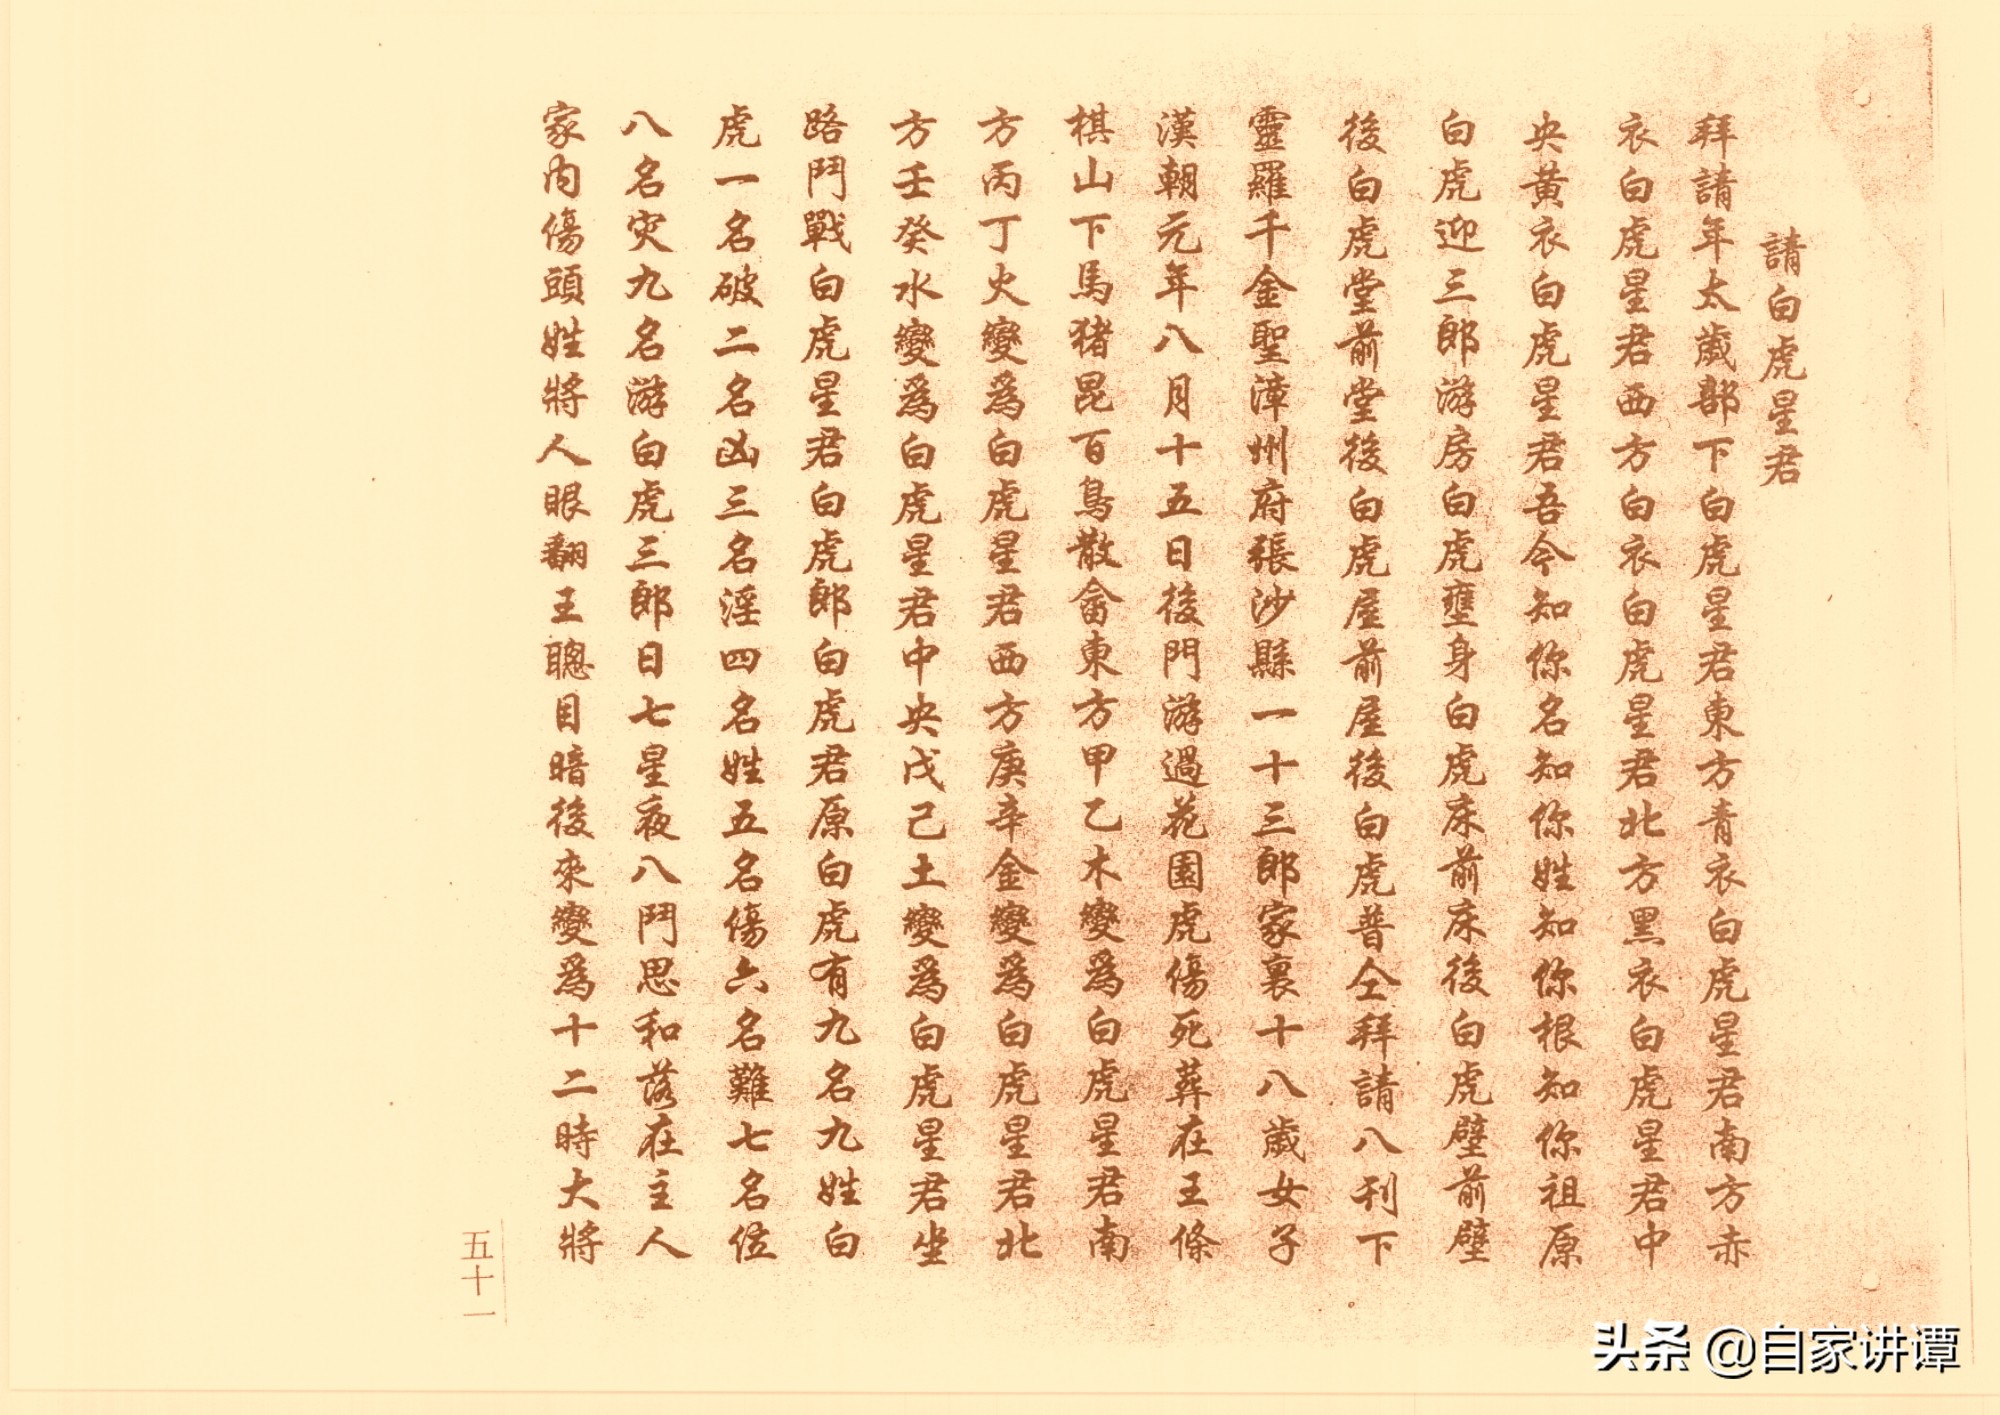 請白虎星君
拜請年太歲部下白虎星君東方青衣白虎星君南方赤
衣白虎星君西方白衣白虎星君北方黑衣白虎星君中
央黃衣白虎星君吾今知你名知你姓知你根知你祖原
白虎迎三郎游房白虎壅身白虎床前床後白虎壁前壁
後白虎堂前堂後白虎屋前屋後白虎普仝拜請八刊下
靈羅千金聖漳州府張沙縣一十三郎家裏十八歲女子
漢朝元年八月十五日後門游過花園虎傷死葬在王條
棋山下馬猪昆百鳥散畬東方甲乙木變為白虎星君南
方丙丁火變為白虎星君西方庚辛金變為白虎星君北
方壬癸水變為白虎星君中央戊己土變為白虎星君坐
路鬥戰白虎星君白虎郎白虎君原白虎有九名九姓白
虎一名破二名凶三名淫四名姓五名傷六名難七名位
八名灾九名游白虎三郎日七星夜八鬥思和落在主人
家內傷頭姓將人眼翻王聰目暗後來變為十二時大將
五十一
头条 @自家讲谭